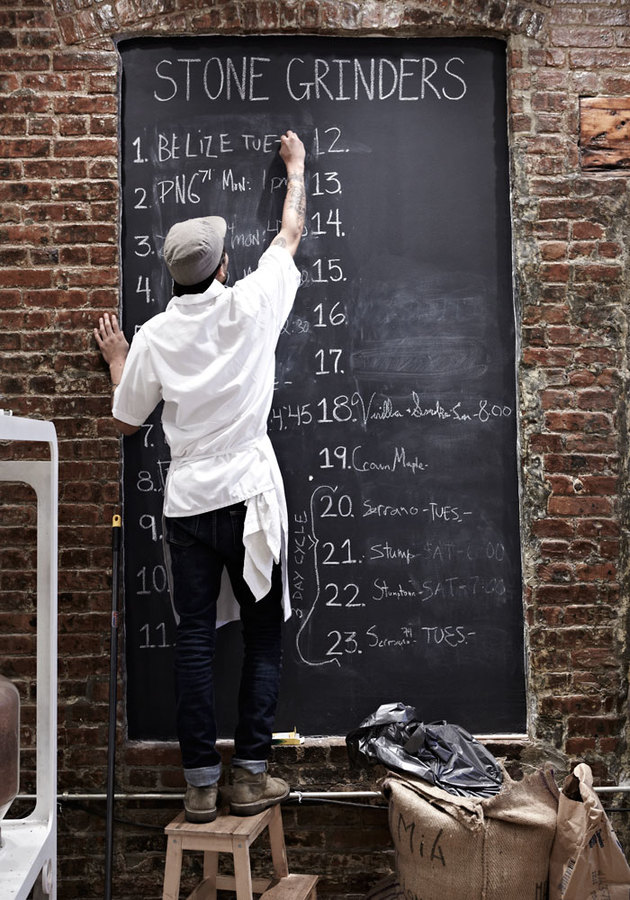 STONE GRINDERS
1. BELIZE TUE-
2. PNG 71 Mon: 1pm
3. Mon: 4
4.
7. 4:45
8.
9.
10.
11.
12.
13.
14.
15.
16.
17.
18. Vanilla + Smoke-Sun-8:00
19. Crown Maple-
3 DAY CYCLE
20. Serrano-TUES.-
21. Stump-SAT-6:00
22. Stumptown-SAT-7:00
23. Serrano 74 TUES.-
MiA